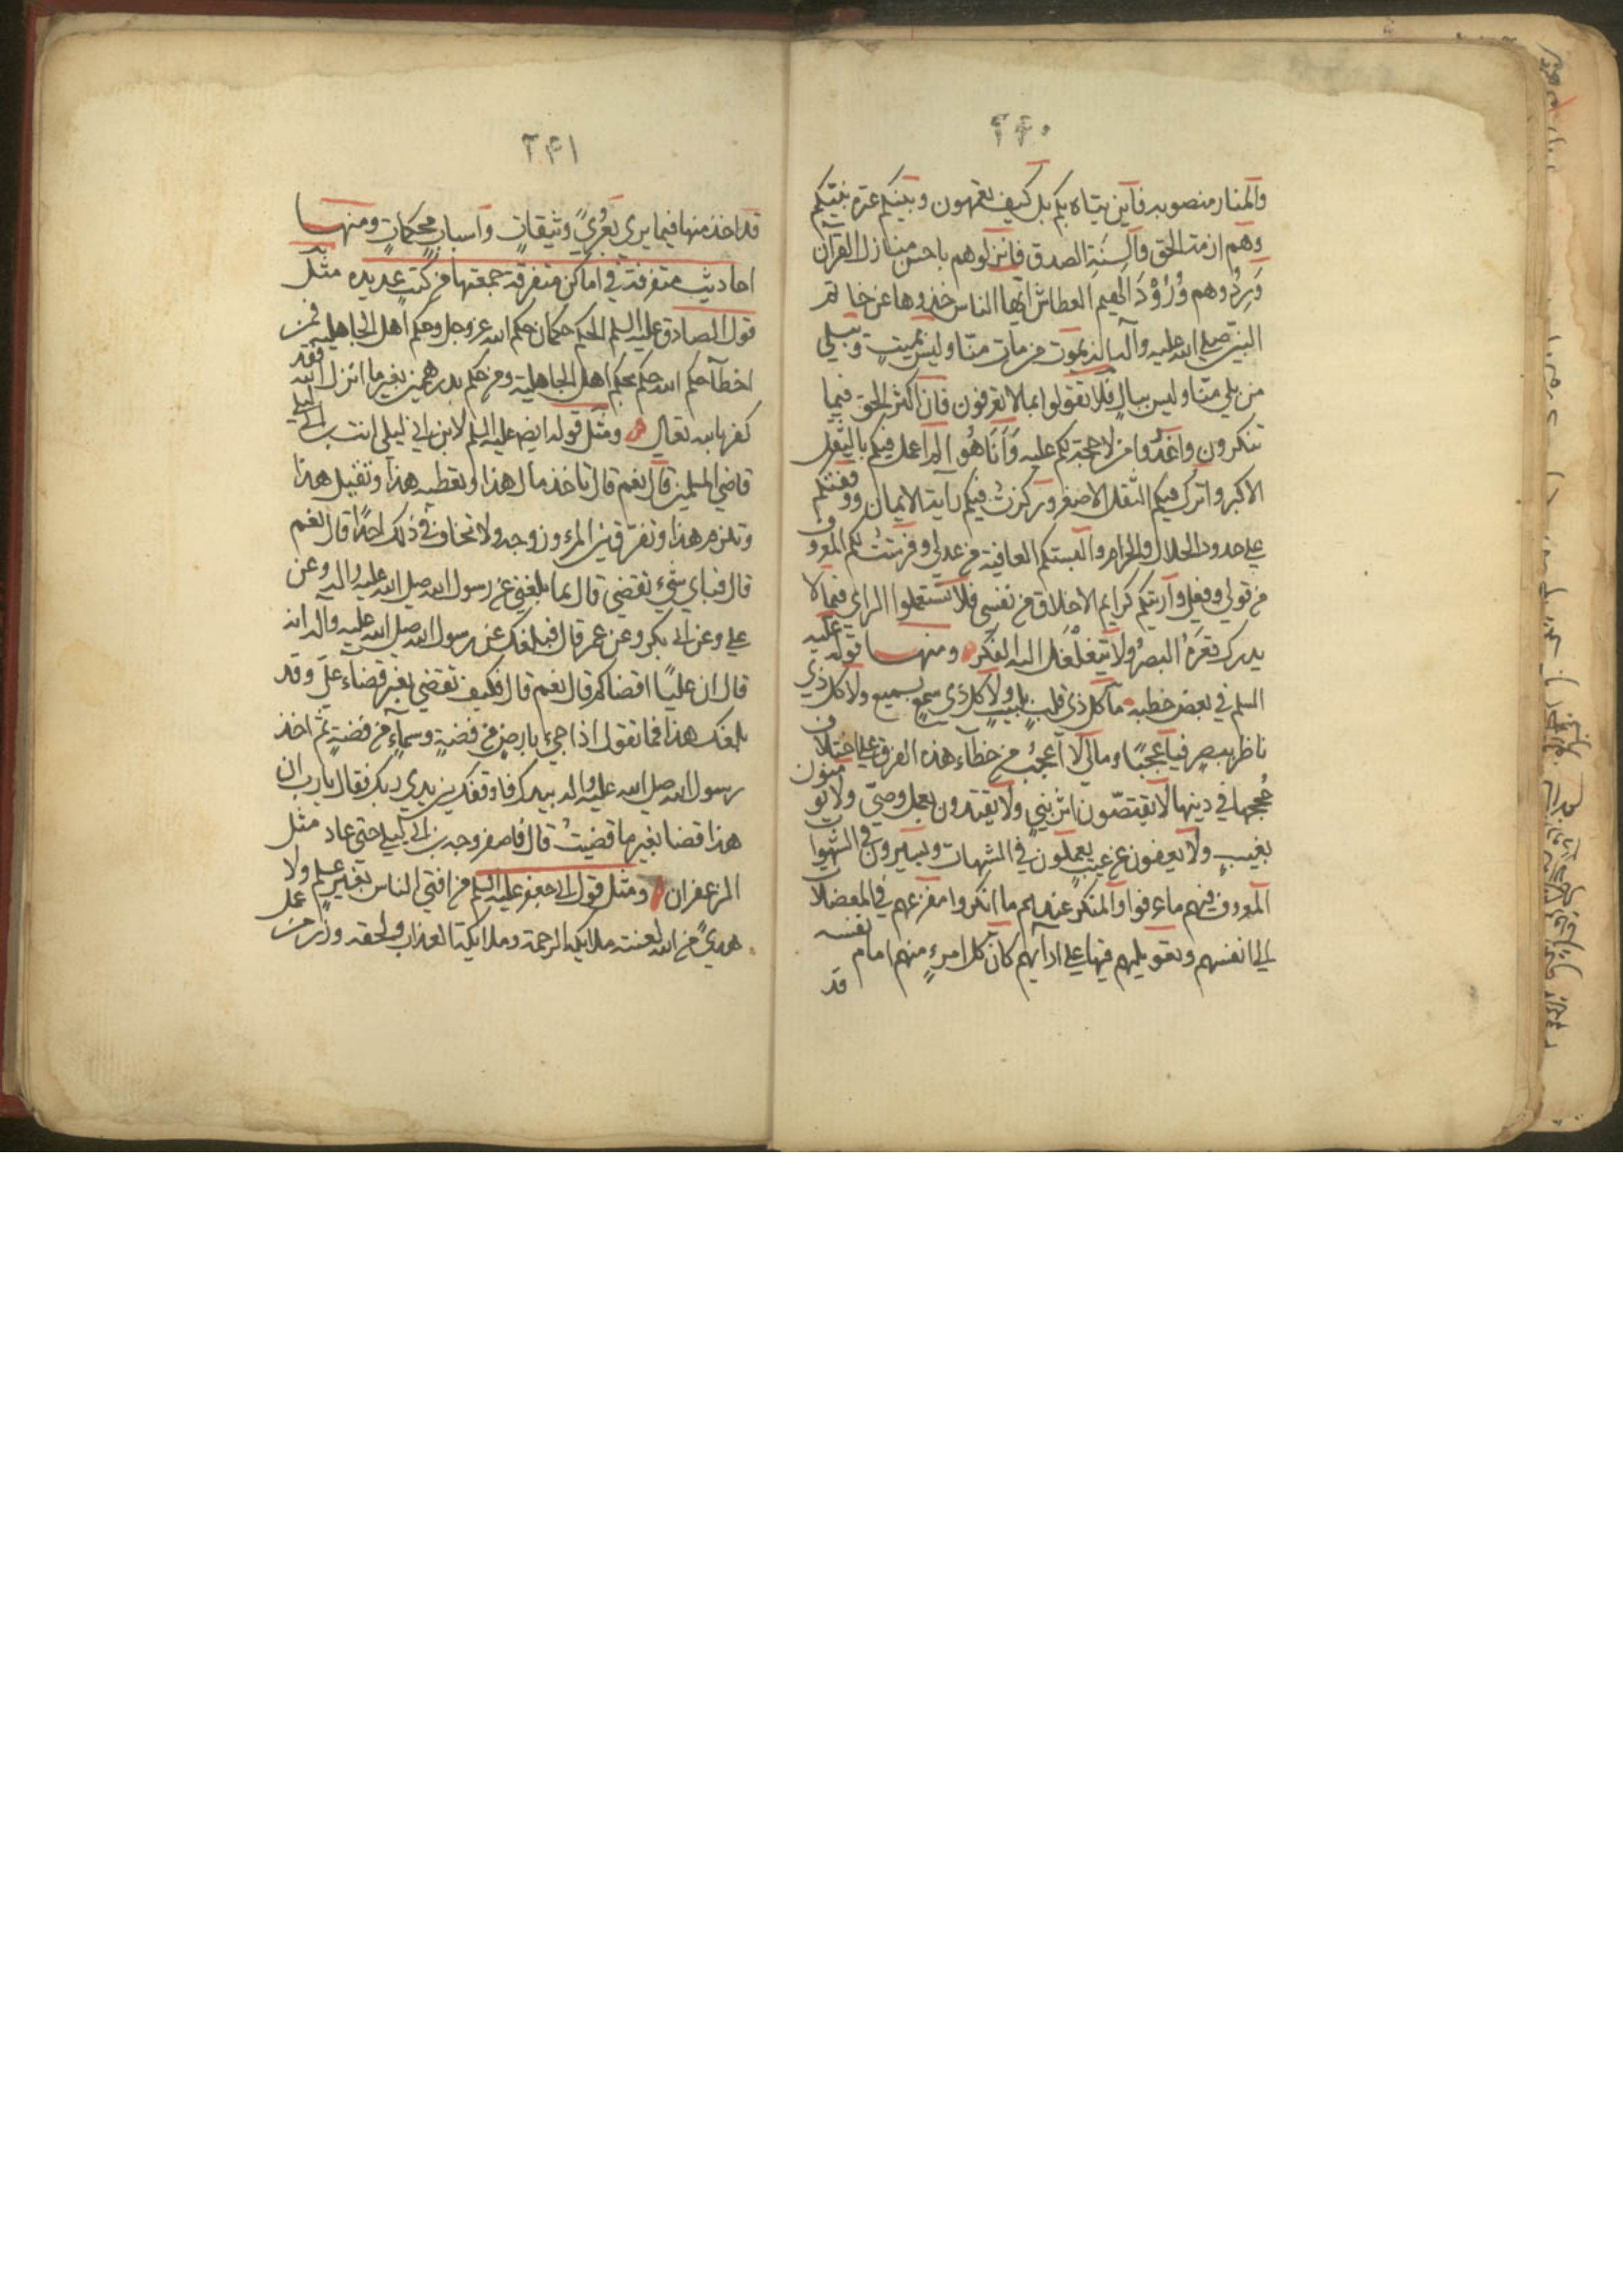 ٢٤٠
والمنار منصوبه فاين يتاه بكم بل كيف تعمهون وبينكم عترة نبيّكم
وهم ازمة الحق والسنة الصدق فانزلوهم باحسن منازل القرآن
وردوهم ورود الهيم العطاش ايها الناس خذوها عن خاتم
النبيين صلى الله عليه وآله انه يموت من مات منّا وليس بميت ويبلى
من بلي منّا وليس ببال فلا تقولوا بما لا تعرفون فان اكثر الحق فيما
تنكرون واعذروا من لا حجة لكم عليه وانا هو الم اعمل فيكم بالثقل
الاكبر واترك فيكم الثقل الاصغر وركزت فيكم راية الايمان ووقفتكم
على حدود الحلال والحرام والبستكم العافية من عدلي وفرشت لكم المعروف
من قولي وفعلي واريتكم كرايم الاخلاق من نفسي فلا تستعملوا الراي فيما لا
يدرك قعره البصر ولا يتغلغل اليه الفكر ومنها قوله عليه
السلم في بعض خطبه ما كل ذي قلب بلبيب ولا كل ذي سمع بسميع ولا كل ذي
ناظر ببصير فيا عجبًا ومالي لا اعجب من خطاء هذه الفرق على اختلاف
حججها في دينها لا يقتصّون اثر نبي ولا يقتدون بعمل وصيّ ولا يؤمنون
بغيب ولا يعفون عن عيب يعملون في الشبهات ويسيرون في الشهوات
المعروف فيهم ما عرفوا والمنكر عندهم ما انكروا مفزعهم في المعضلات
الى انفسهم وتعويلهم فيها على ارآيهم كان كل امرء منهم امام نفسه
قد
٢٤١
قد اخذ منها فيما يرى بعُرىً وثيقات واسباب محكمات ومنها
احاديث متفرقة في اماكن متفرقة جمعتها من كتب عديده مثل
قول الصادق عليه السلم الحكم حكمان حكم الله عز وجل وحكم اهل الجاهلية فمن
اخطأ حكم الله حكم بحكم اهل الجاهلية ومن حكم بدرهمين بغير ما انزل الله فقد
كفر بالله تعالى ومثل قوله ايضا عليه السلم لابن ابي ليلى انت ابن ابي ليلى
قاضي المسلمين قال نعم قال تاخذ مال هذا وتعطيه هذا وتقتل هذا
وتلزم هذا وتفرق بين المرء وزوجه ولا تخاف في ذلك احدا قال نعم
قال فباي شيء تقضي قال بما بلغني عن رسول الله صلى الله عليه واله وعن
علي وعن ابي بكر وعن عمر قال فبلغك عن رسول الله صلى الله عليه واله انه
قال ان عليًا اقضاكم قال نعم قال فكيف تقضي بغير قضاء علي وقد
بلغك هذا فما تقول اذا جيء بارض من فضة وسماء من فضة ثم اخذ
رسول الله صلى الله عليه واله بيدك فاوقفك بين يدي ربك فقال يارب ان
هذا قضا بغير ما قضيت قال فاصفر وجه ابن ابي ليلى حتى عاد مثل
الزعفران ومثل قول ابي جعفر عليه السلم من افتى الناس بغير علم ولا
هدىً من الله لعنته ملائكة الرحمة وملائكة العذاب ولحقه وزر من عمل